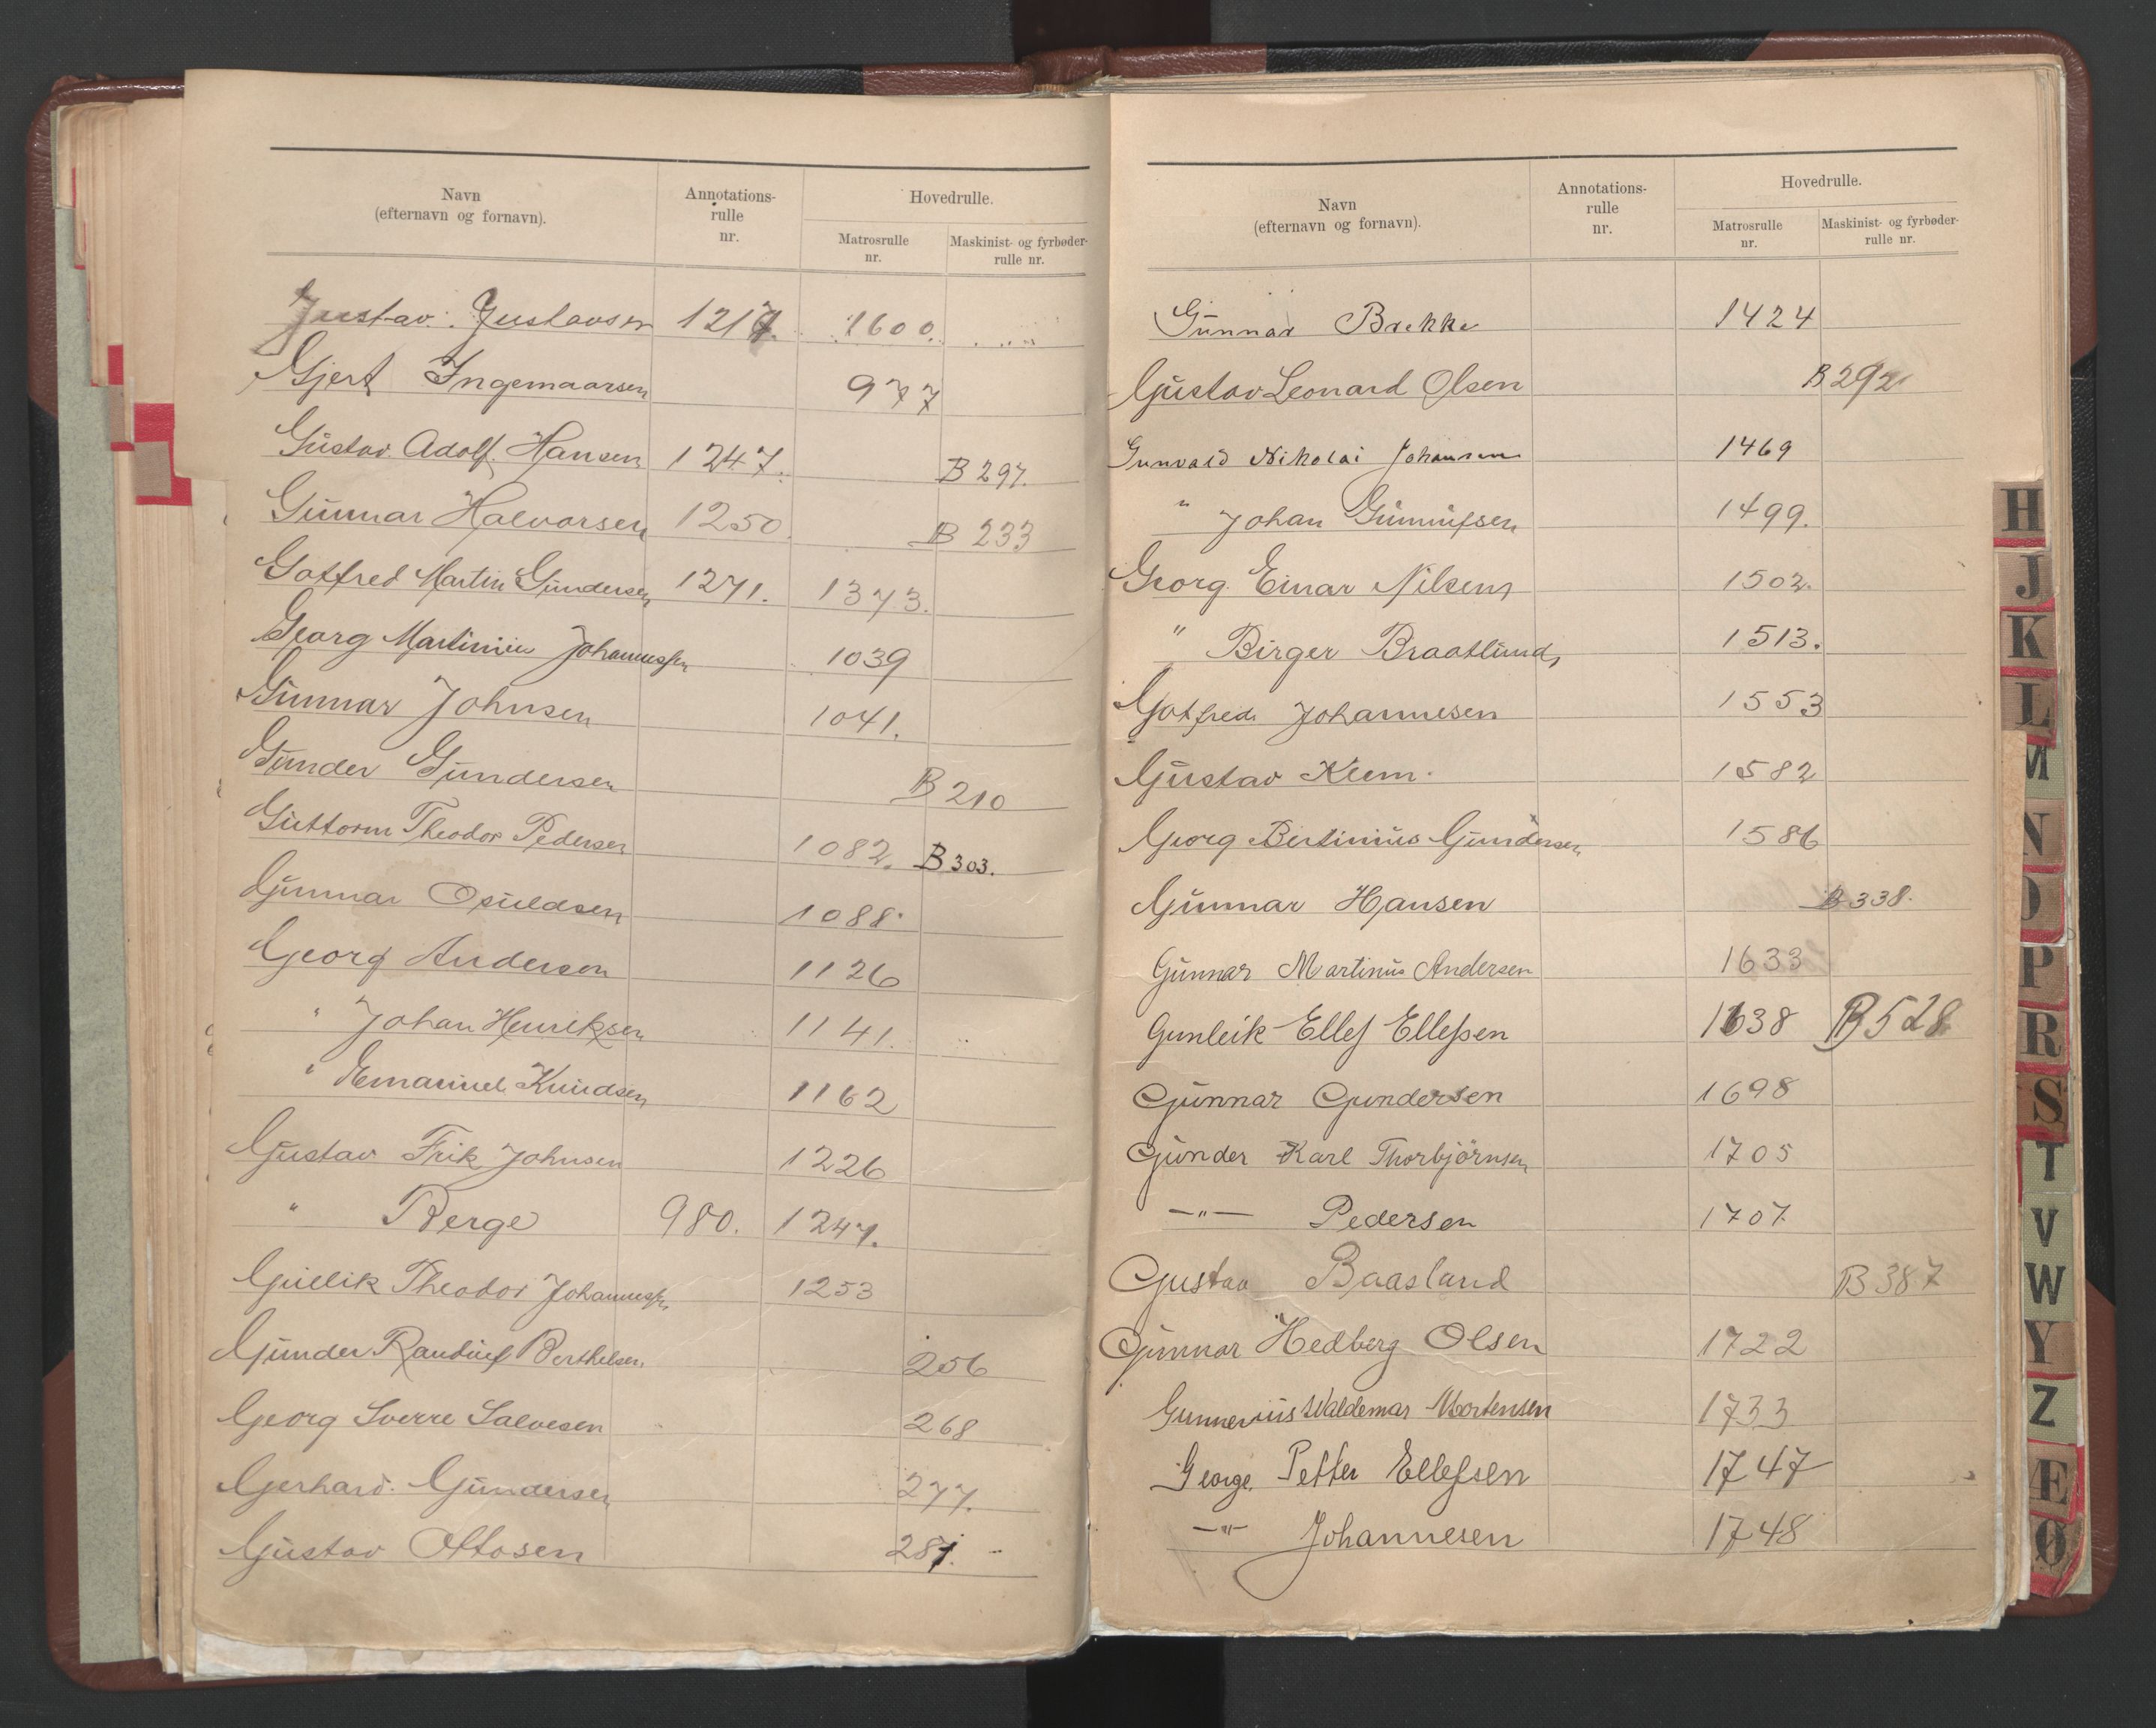 Navn
(efternavn og fornavn).
Annotations-
rulle
nr.
Hovedrulle.
Matrosrulle
nr.
Maskinist- og fyrbøder-
rulle nr.
Gustav Gustavsen 1217. 1600.
Gjert Ingemaarsen 977
Gustav Adolf Hansen 1247. B 297.
Gunnar Halvorsen 1250. B 233
Gotfred Martin Gundersen 1271. 1373.
Georg Martinius Johannessen 1039
Gunnar Johnsen 1041.
Gunder Gundersen B 210
Guttorm Theodor Pedersen 1082. B 303.
Gunnar Osuldsen 1088.
Georg Andersen 1126
" Johan Henriksen 1141.
" Emanuel Knudsen 1162
Gustav Frik Johnsen 1226
" Berge 980. 1247.
Gullik Theodor Johannessen 1253
Gunder Randulf Berthelsen. 256
Georg Sverre Salvesen 268
Gerhard Gundersen 277.
Gustav Ottosen 281.
Navn
(efternavn og fornavn).
Annotations-
rulle
nr.
Hovedrulle.
Matrosrulle
nr.
Maskinist- og fyrbøder-
rulle nr.
Gunnar Brekke 1424
Gustav Leonard Olsen B 292
Gunvald Nikolai Johansen 1469
" Johan Gunnufsen 1499.
Georg Einar Nilsen 1502.
" Birger Braatlund, 1513.
Gotfred Johannesen 1553
Gustav Klem. 1582
Georg Bertinius Gundersen 1586
Gunnar Hansen B 338.
Gunnar Martinus Andersen 1633
Gunleik Ellef Ellefsen 1638 B 528
Gunnar Gundersen 1698
Gunder Karl Thorbjörnsen 1705
—"— Pedersen 1707.
Gustav Baasland B 387
Gunnar Hedberg Olsen 1722
Gunnerius Waldemar Mortensen 1733
George Petter Ellefsen 1747
—"— Johannesen 1748
H
J
K
L
M
N
O
P
R
S
T
V
W
Y
Z
Æ
Ø